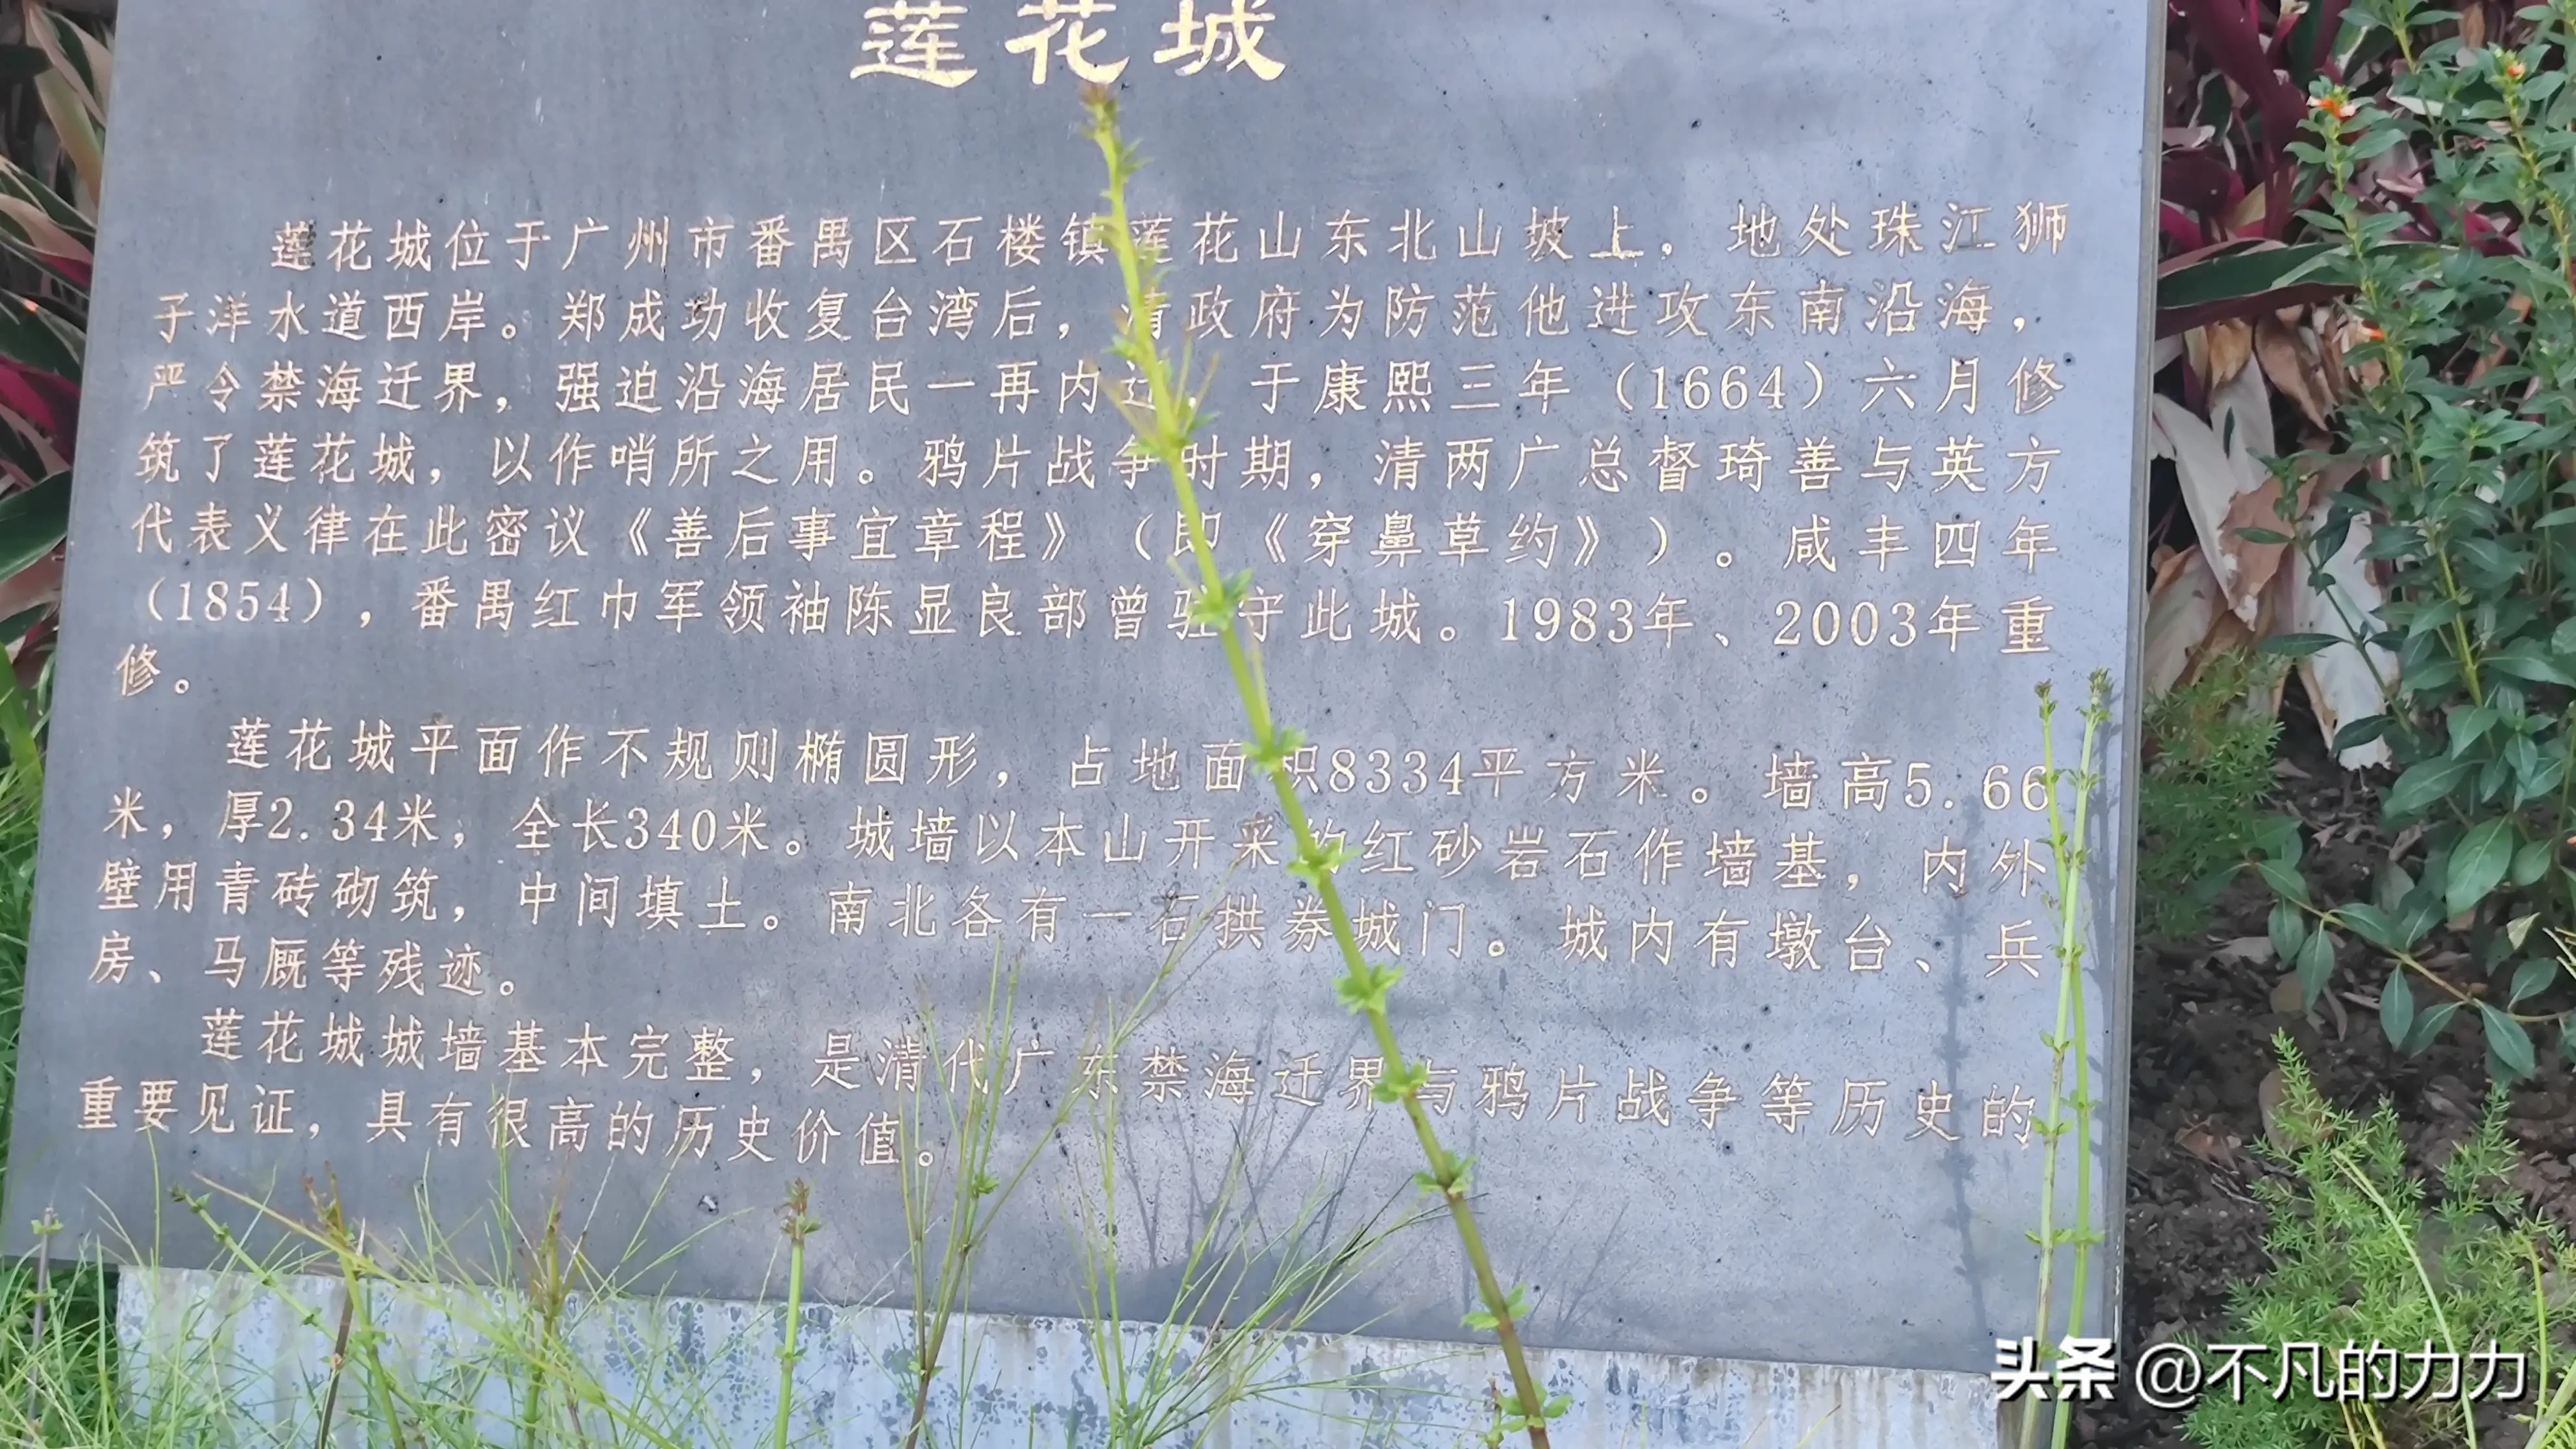 莲花城
莲花城位于广州市番禺区石楼镇莲花山东北山坡上，地处珠江狮
子洋水道西岸。郑成功收复台湾后，清政府为防范他进攻东南沿海，
严令禁海迁界，强迫沿海居民一再内迁，于康熙三年（1664）六月修
筑了莲花城，以作哨所之用。鸦片战争时期，清两广总督琦善与英方
代表义律在此密议《善后事宜章程》（即《穿鼻草约》）。咸丰四年
（1854），番禺红巾军领袖陈显良部曾驻守此城。1983年、2003年重
修。
莲花城平面作不规则椭圆形，占地面积8334平方米。墙高5.66
米，厚2.34米，全长340米。城墙以本山开采的红砂岩石作墙基，内外
壁用青砖砌筑，中间填土。南北各有一石拱券城门。城内有墩台、兵
房、马厩等残迹。
莲花城城墙基本完整，是清代广东禁海迁界与鸦片战争等历史的
重要见证，具有很高的历史价值。
头条 @不凡的力力